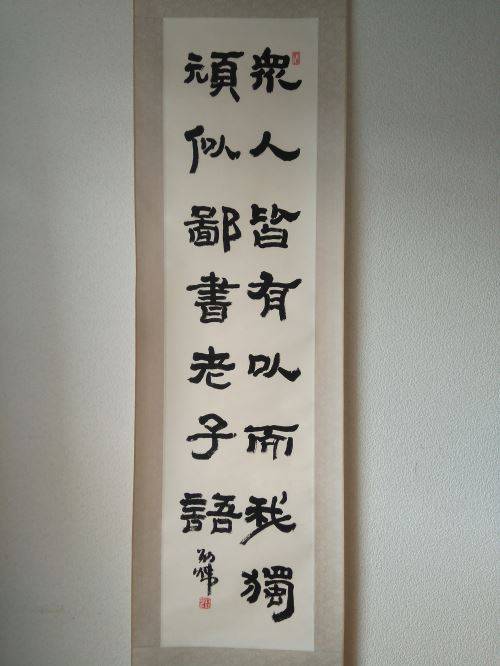 眾人皆有以而我獨
頑似鄙書老子語